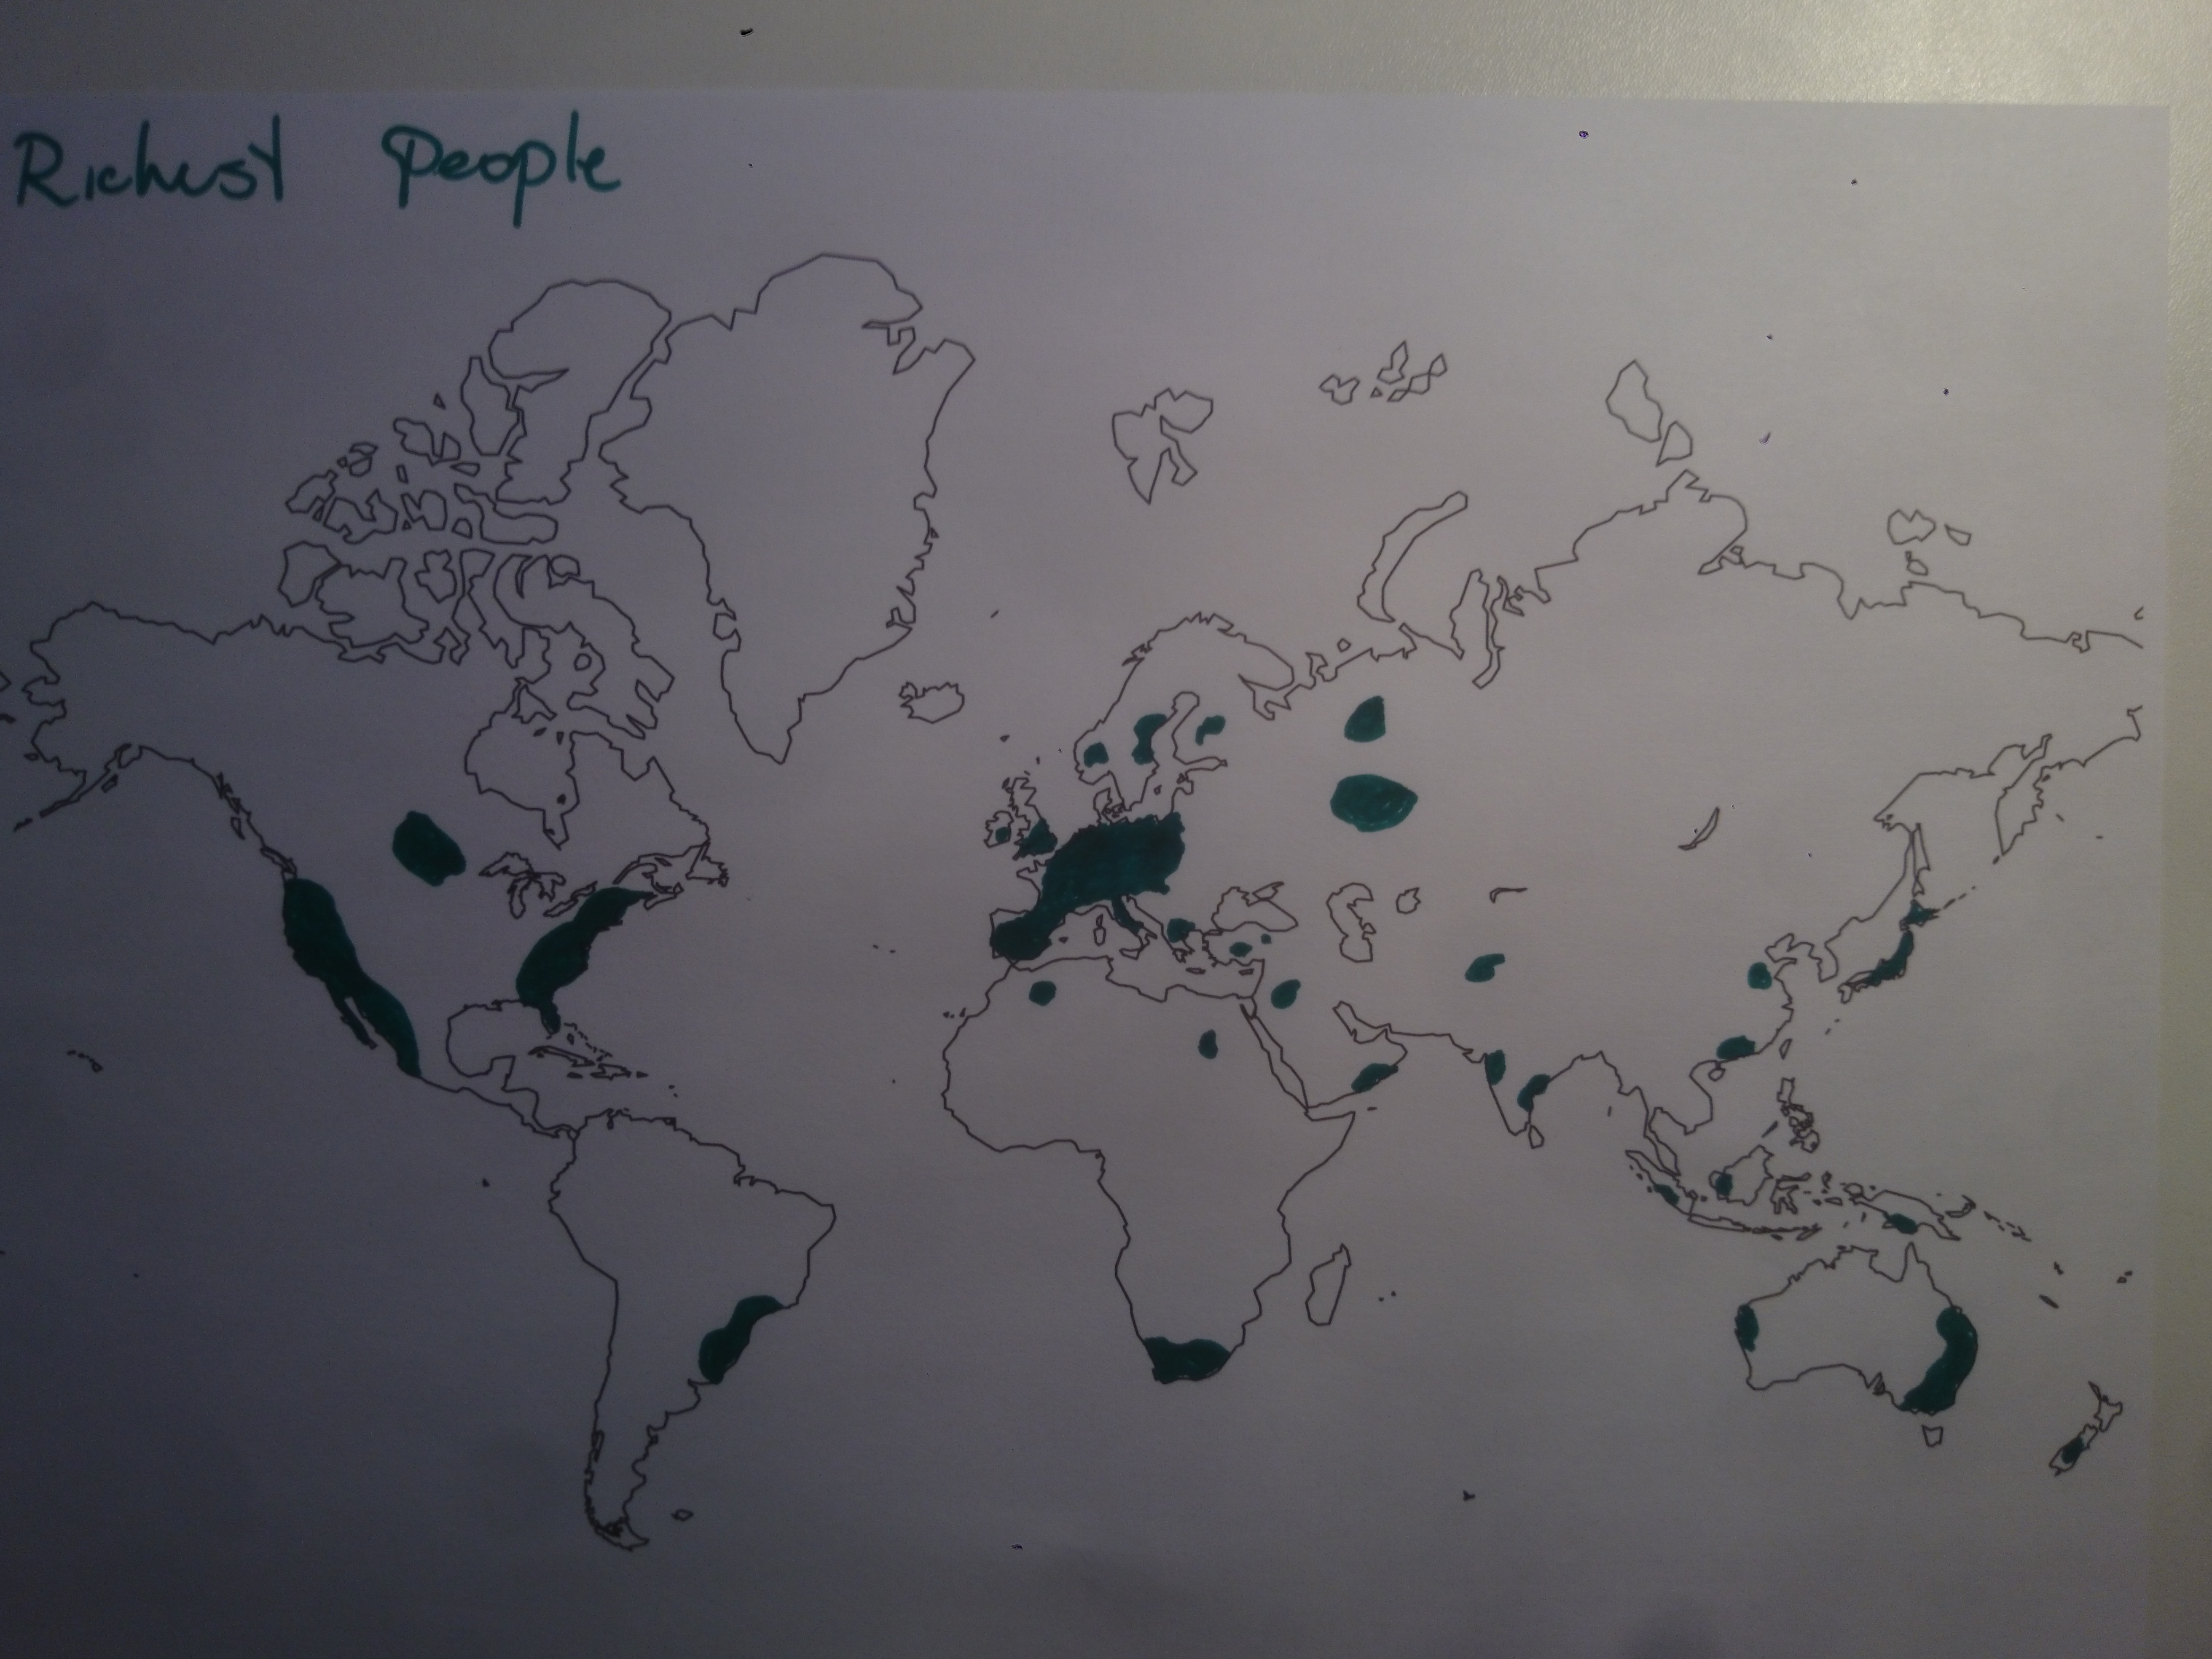 Richest People